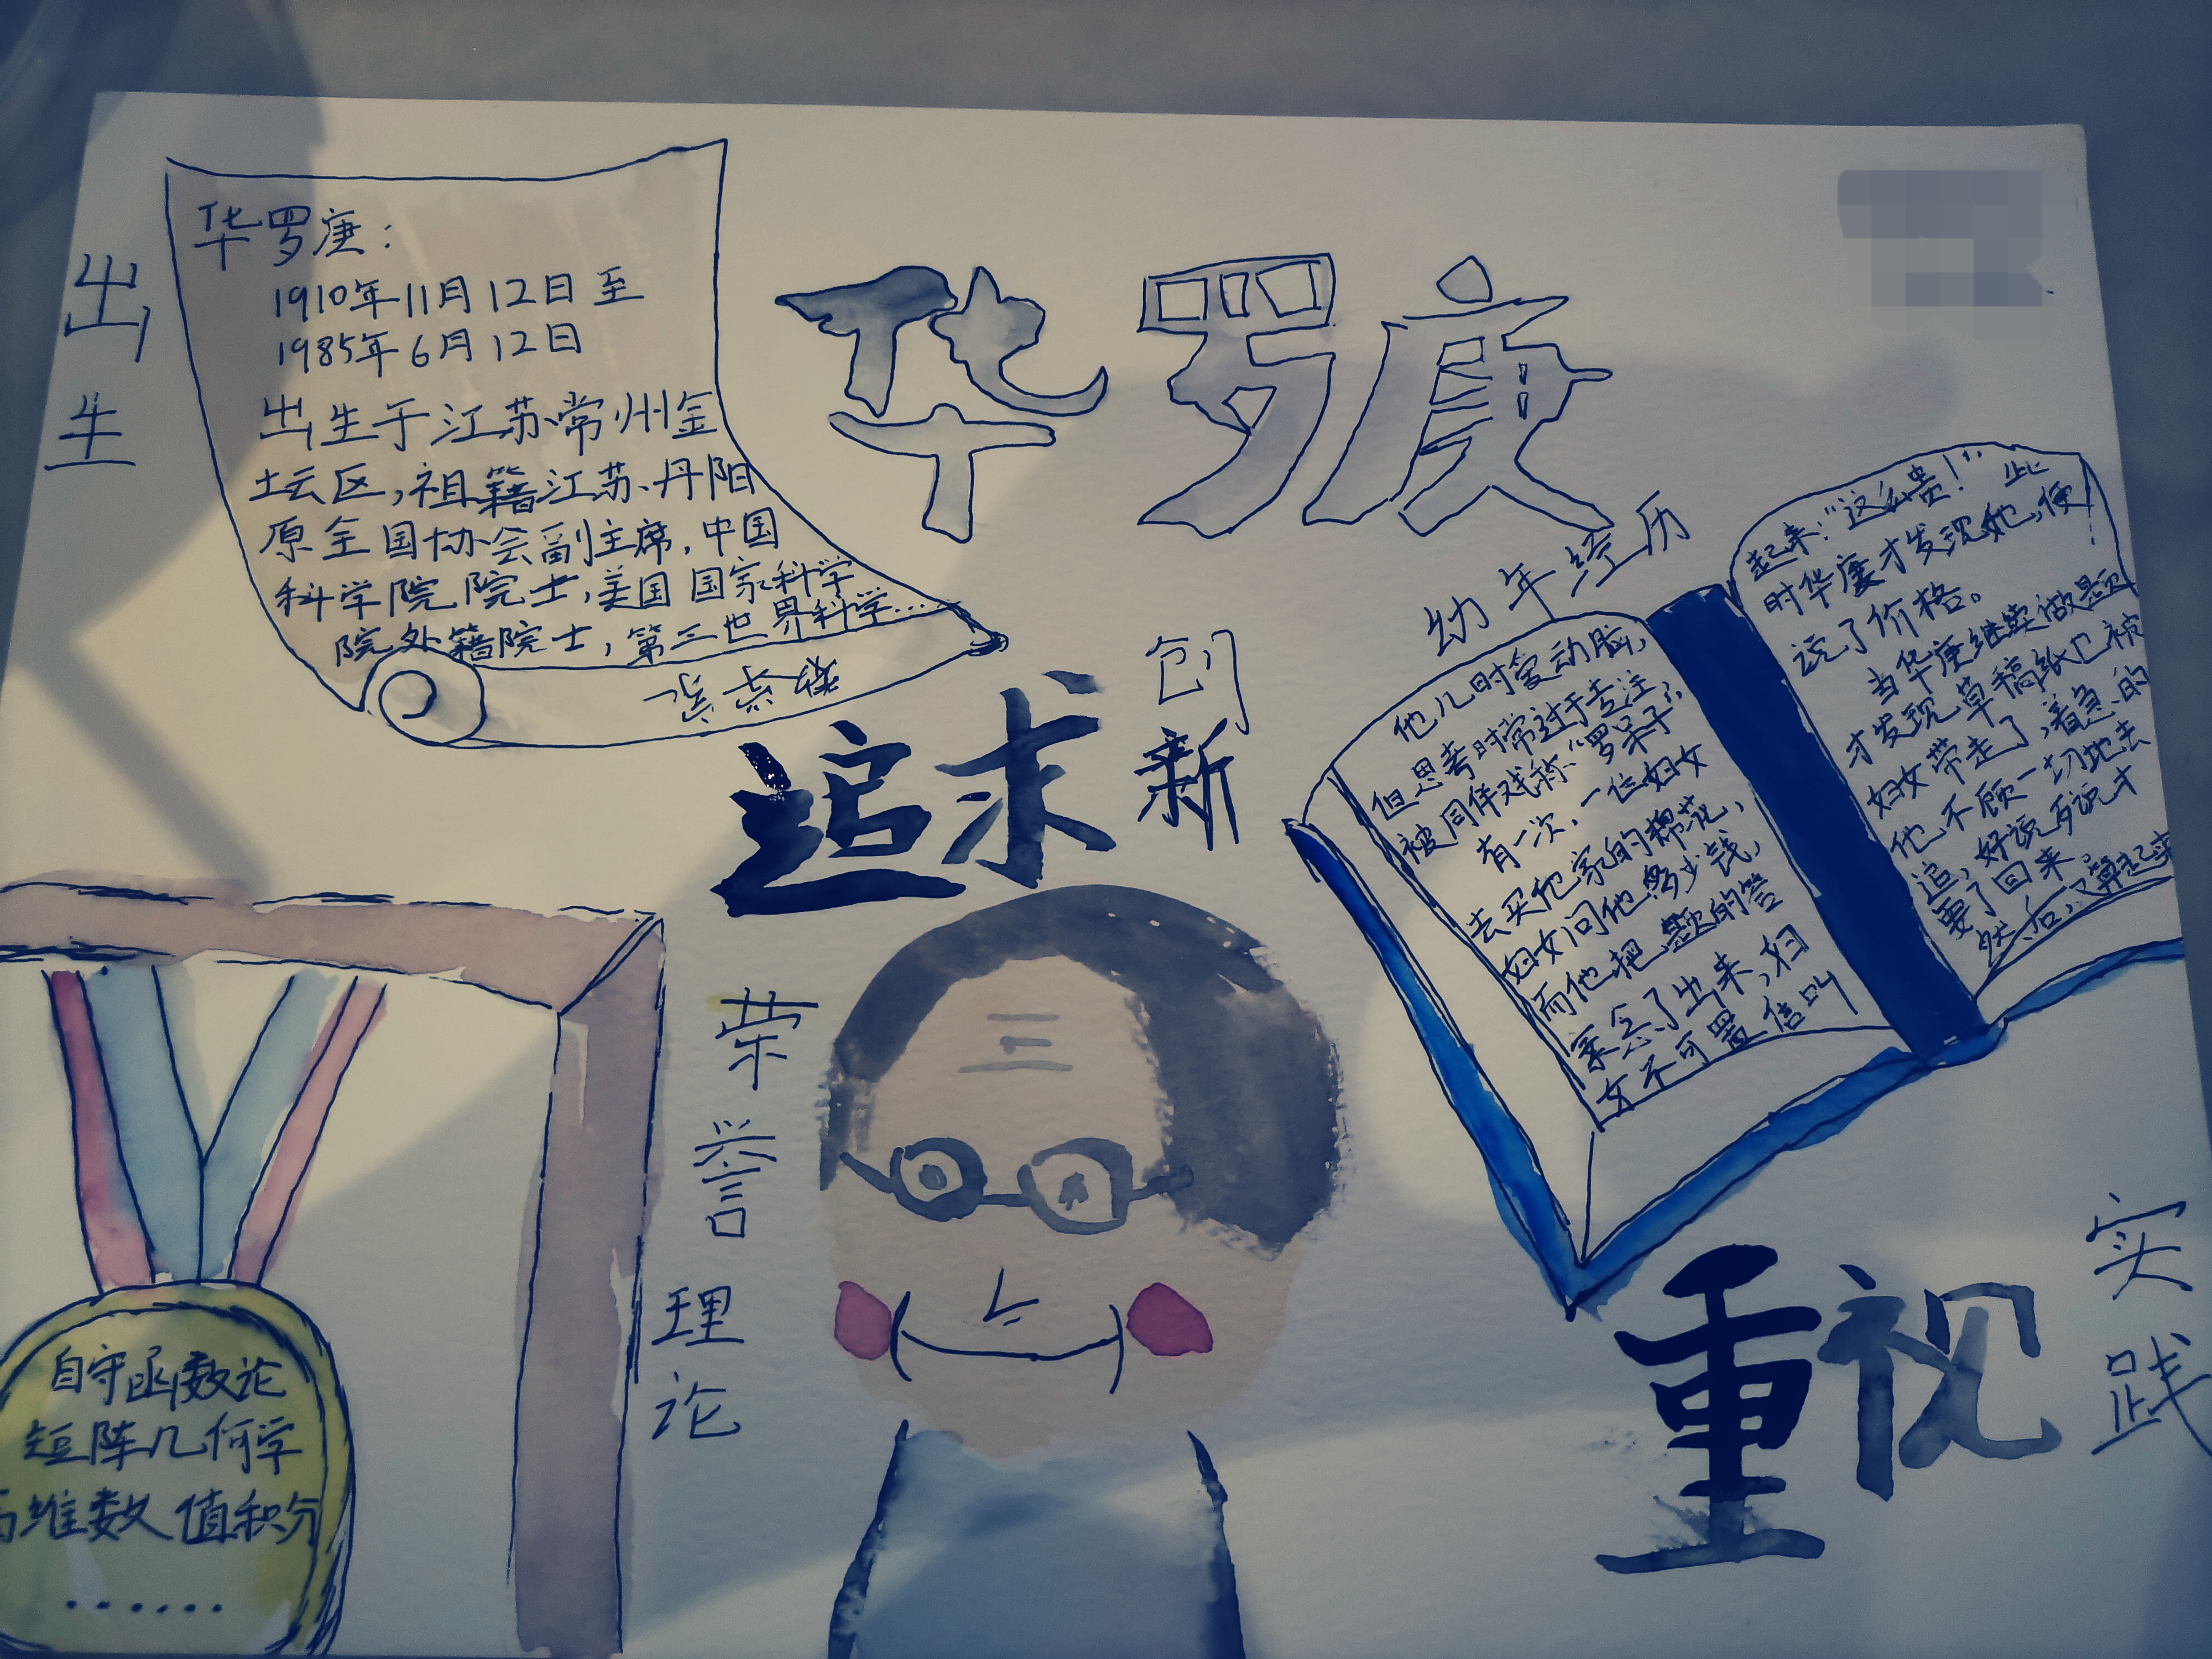 华罗庚
出生
华罗庚：
1910年11月12日至
1985年6月12日
出生于江苏常州金
坛区，祖籍江苏丹阳
原全国协会副主席，中国
科学院院士，美国国家科学
院外籍院士，第三世界科学…
追求
创新
幼年经历
他儿时爱动脑，
但思考时常过于专注，
被同伴戏称“罗呆子”，
有一次，一位妇女
去买他家的棉花，
妇女问他多少钱，
而他把题的答
案念了出来，妇
女不可置信叫
起来：“这么贵！”，此
时华庚才发现她，便
说了价格。
当华庚继续做题
才发现草稿纸也被
妇女带走了，着急的
他不顾一切地去
追，好说歹说才
要了回来
然后，又算起来
荣誉
理论
自守函数论
短阵几何学
高维数值积分
……
重视
实践